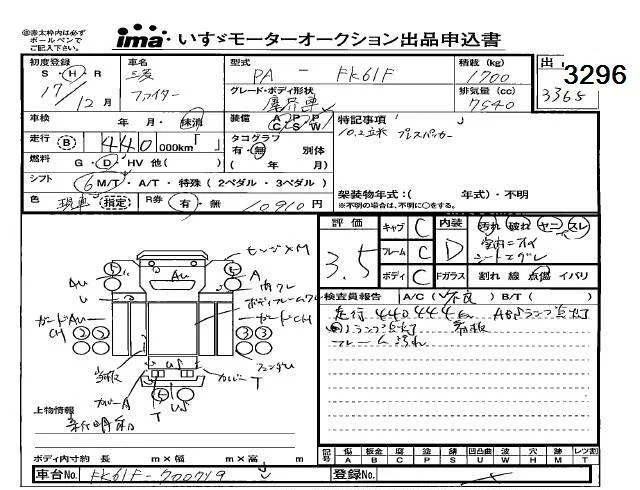 ◎赤太枠内は必ず
ボールペンで
ご記入下さい。
ima・いすゞモーターオークション出品申込書
初度登録 車名 型式 積載 (kg) 出
S・H・R 三菱 PA - FK61F 1700 3296
17/12月 ファイター グレード・ボディ形状 排気量 (cc) 3365
塵芥車 7540
車検 年 月・抹消 装備 A P P C S W 特記事項
10.2立米 プレスパッカー
走行 B 440 000km「 」 タコグラフ
有・無 別体
燃料 G・D・HV 他( ) ( 年 月)
シフト 6 M/T・A/T・特殊(2ペダル・3ペダル) 架装物年式:( 年式)・不明
※不明の場合は、不明に○をする。
色 現車 指定 R券 有・無 10910円
評価 3.5 キャブ C 内装 D 汚れ 破れ ヤニ スレ
フレーム C
シートエグレ
ボディ C Fガラス 割れ 線 点傷 イバリ
検査員報告 A/C(不良) B/T( )
走行440444km ABSランプ点灯
ランプ点灯 看板
モレンジ×M
Au Au A
U 内クレ
ボディフレームクレ
ガードAu CH ガードCH
看板 U S フェンダU
カバーA カバーT
T
U
上物情報
新明和
ボディ内寸約 長 m×幅 m×高 m
記号 傷 A 板金 B 腐 C 塗 P 錆 S 凹凸曲 U 波 W 穴 H 跡 M レツ割 T
車台No. FK61F-700719 登録No.